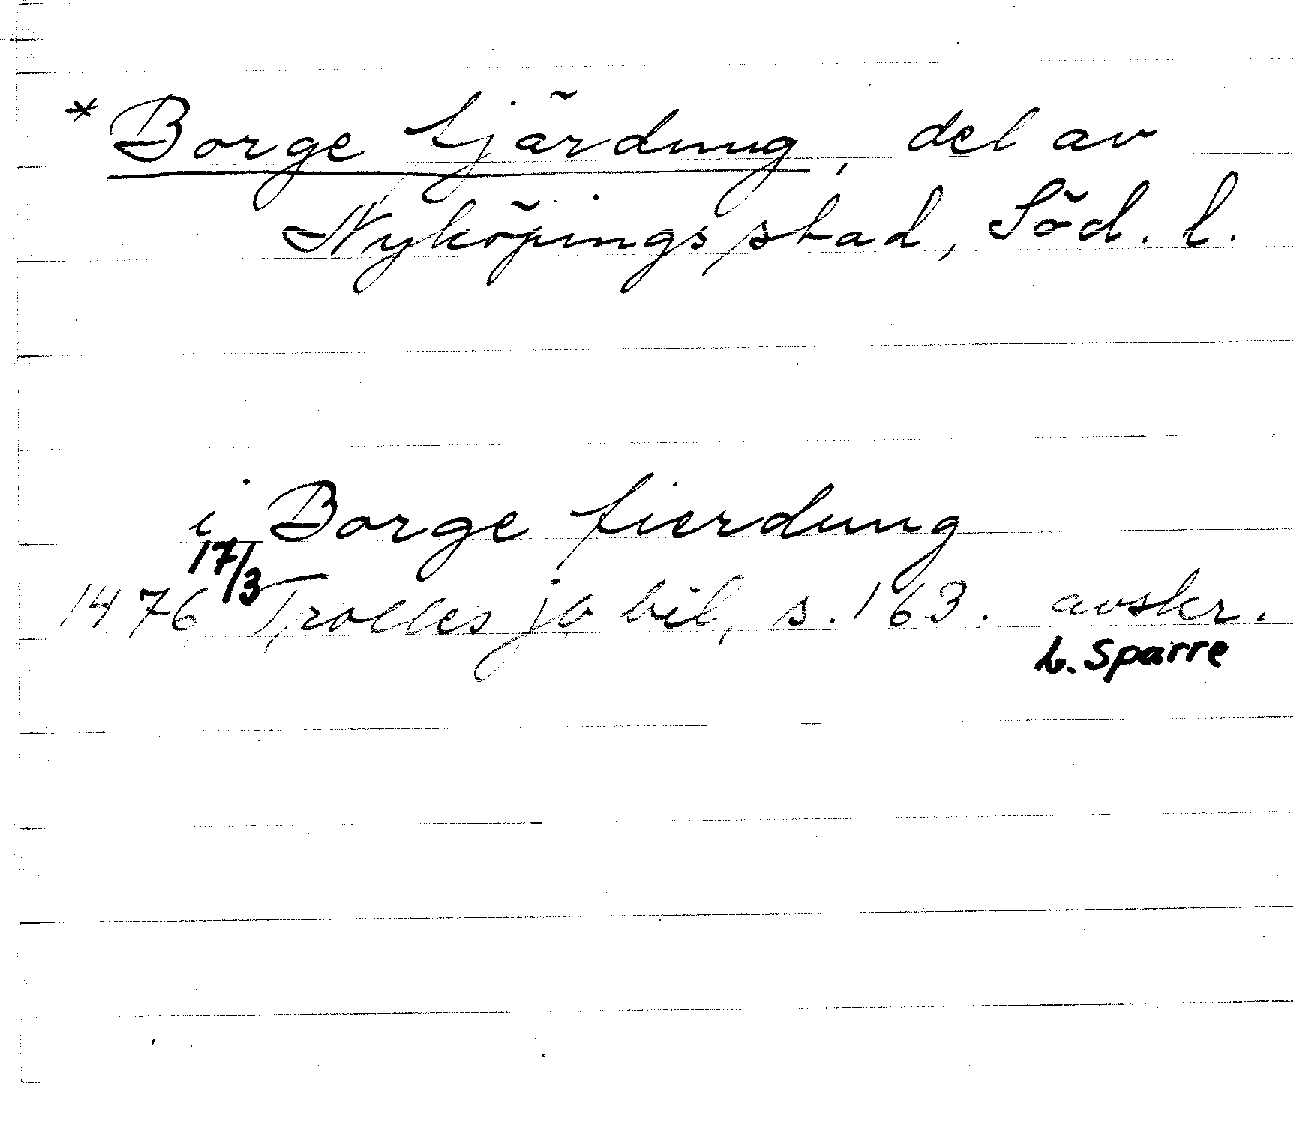 * Borge fjärdung, del av
Nyköpings stad, Söd. l.
i Borge fierdung
1476 17/3 Trolles jb bil, s. 163. avskr.
L. Sparre